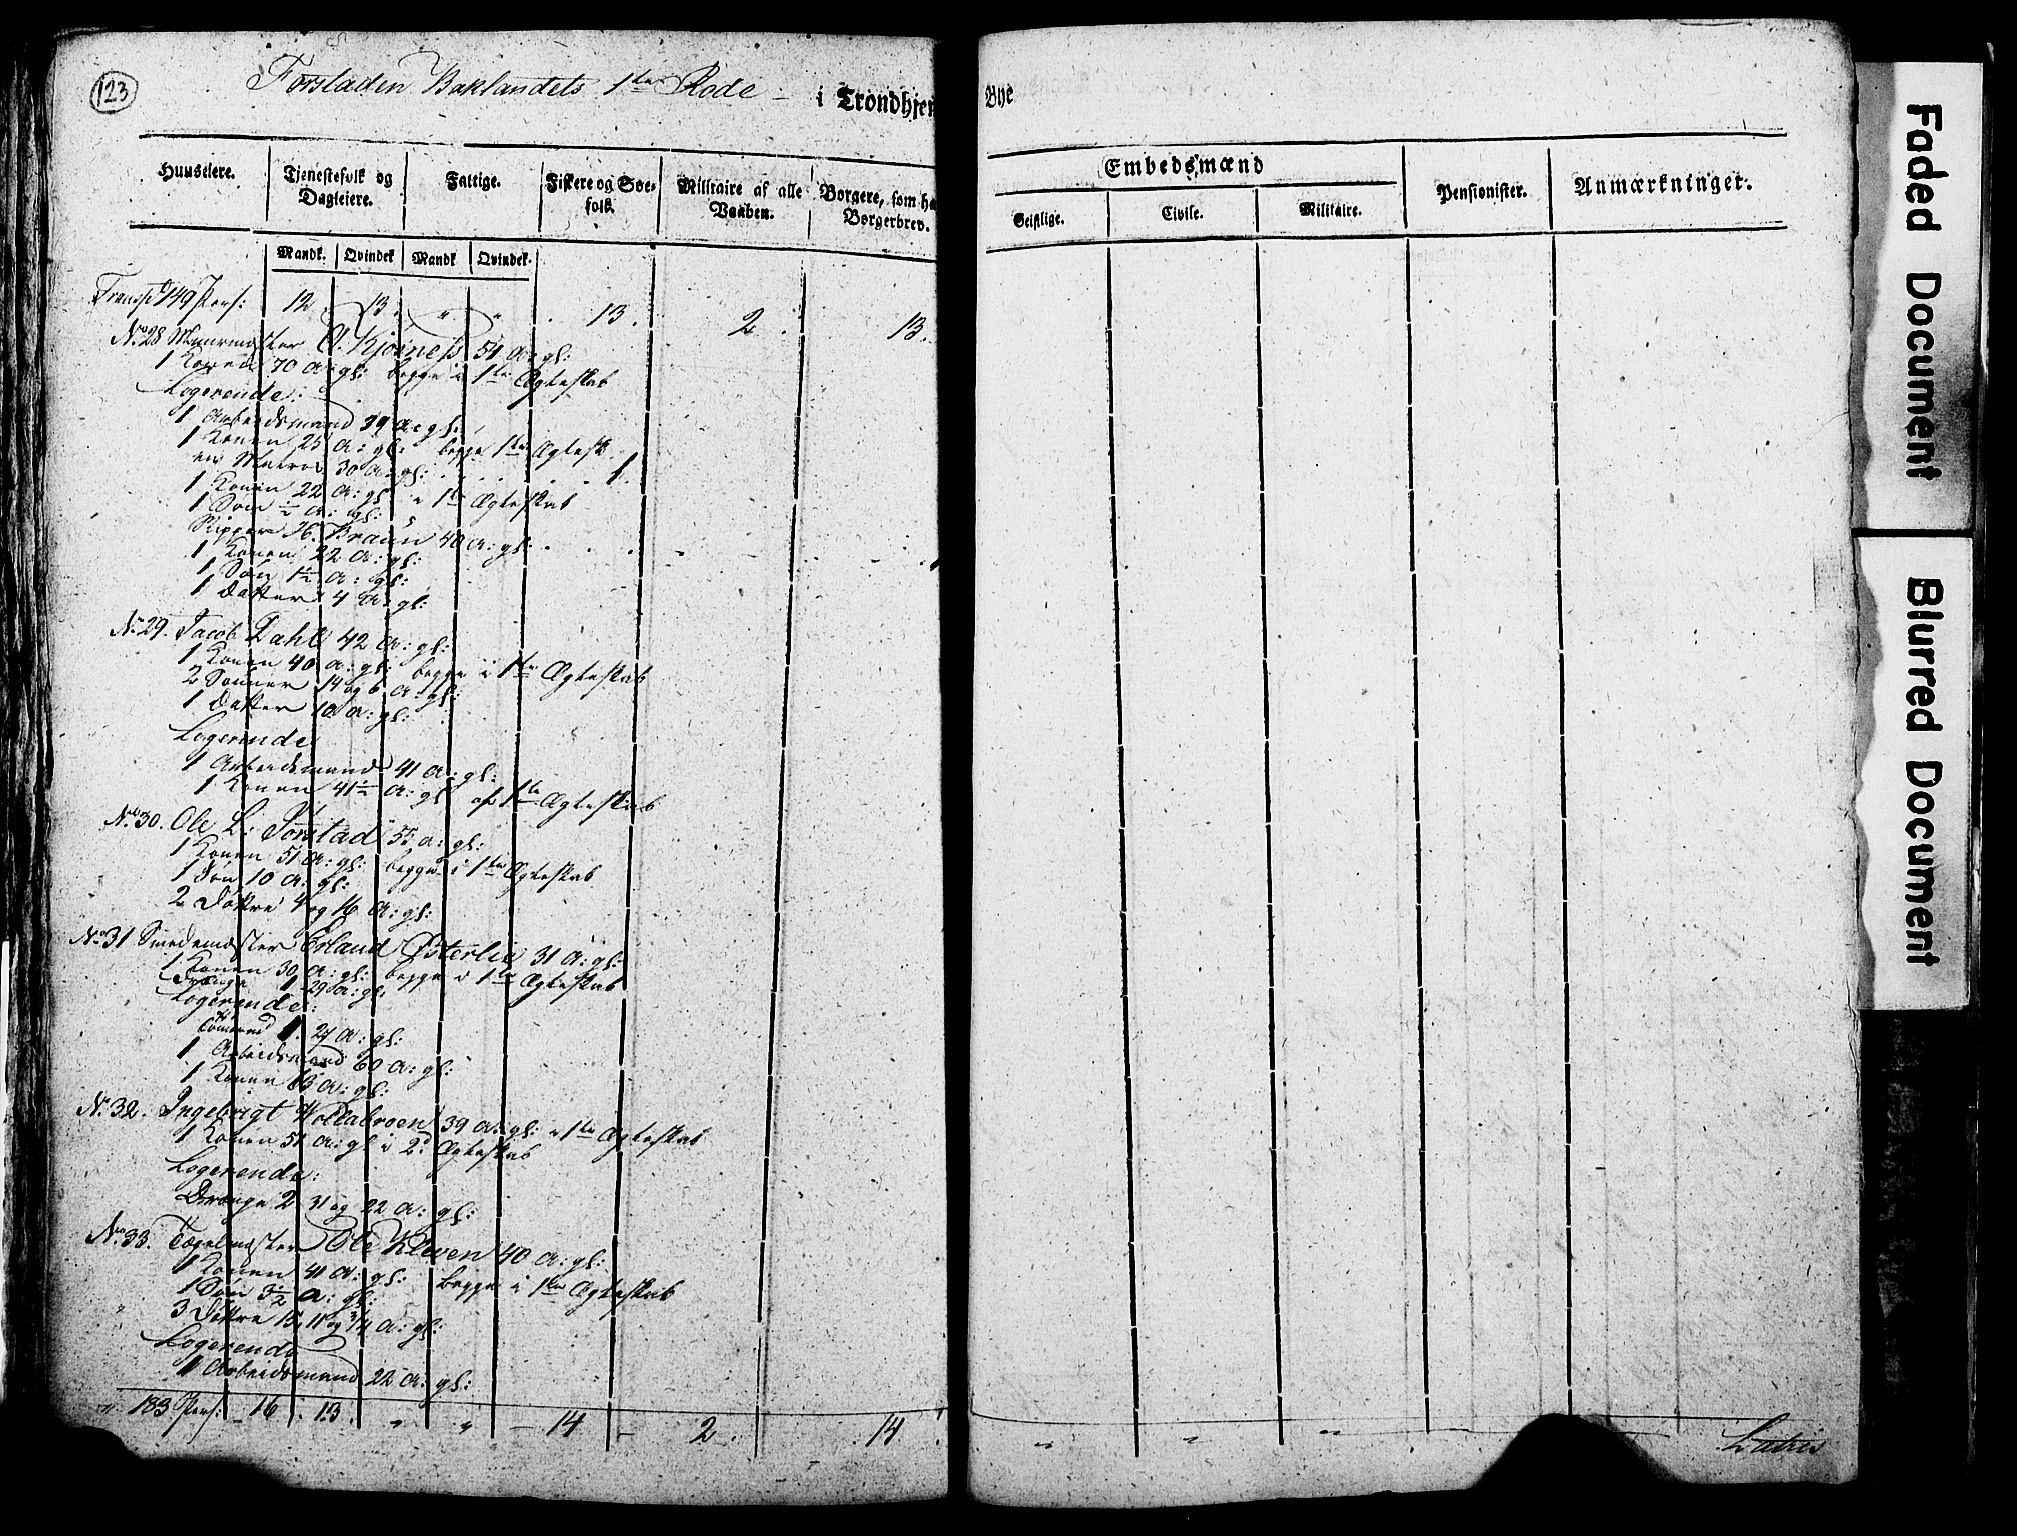 123
Forstaden Baklandets 1te Rode - i Trondhjem
Bye
Huuseiere.
Tjenestefolk og Dagleiere.
Fattige.
Fiskere og Søe-folk.
Militaire af alle Vaaben.
Borgere, som ha Borgerbrev.
Embedsmænd
Geistlige.
Civile.
Militaire.
Pensionister.
Anmærkninger.
Mandk. Qvindek Mandk Qvindek.
Transpt 149 Pers: 12. 13. " " 13. 2. 13.
No 28 Muurmester O. Kjøiness 54 a: gl:
1 Konen 70 a: gl: begge i 1te Ægteskab
Logerende:
1 Arbeidsmand 39 a: gl:
1 Konen 25 a: gl: begge 1te Ægtesk
en Matros 30 a: gl: 1.
1 Konen 22 a: gl i 1te Ægteskab
1 Søn ½ a: gl:
Skipper H. Braun 40 a: gl:
1 Konen 22 a: gl:
1 Søn 1½ a: gl:
1 Datter 4 a: gl:
No 29. Jacob Dahl 42 a: gl:
1 Konen 40 a: gl: begge i 1te Ægteskab
2 Sønner 14 og 6 a: gl:
1 Datter 10 a: gl:
Logerende
1 Arbeidsmand 41 a: gl:
1 Konen 41½ a: gl af 1te Ægteskab
No 30. Ole L: Sørstad 55 a: gl:
1 Konen 51 a: gl: begge i 1te Ægteskab
1 Søn 10 a: gl:
2 Døttre 4 og 16 a: gl:
No 31 Smedemester Erland Østerlie 31 a: gl:
1 Konen 30 a: gl: begge i 1te Ægteskab
Drænge 1 29 a: gl:
Logerende:
1 27 a: gl:
1 Arbeidsmand 60 a: gl:
1 Konen 63 a: gl:
No 32. Ingebrigt Wollabroen 39 a: gl: i 1te Ægteskab
1 Konen 51 a: gl i 2d Ægteskab
Logerende:
Drænge 2 31 og 22 a: gl:
No 33. Tægelmester Ole Kleven 40 a: gl:
1 Konen 41 a: gl: begge i 1te Ægteskab
1 Søn 3½ a: gl:
3 Døttre 15, 11 og ¾ a: gl:
Logerende
1 Arbeidsmand 22 a: gl:
183 Pers: 16. 13. " " 14 2. 14.
" " "
Latus
Faded Document
Blurred Document